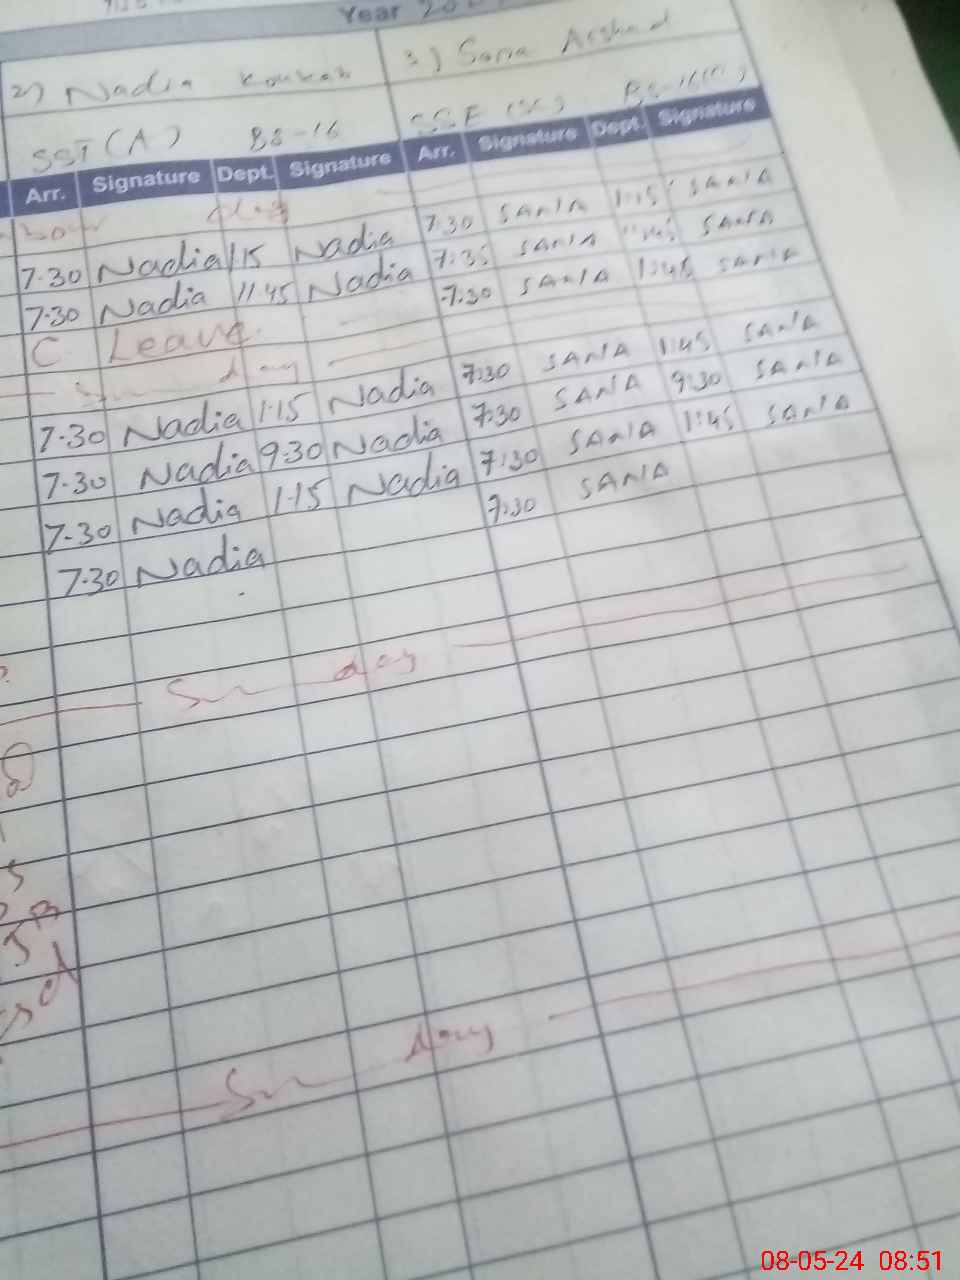 Year 20
2) Nadia Koukab 3) Sania Arshad
SST (A) BS-16 SSE (SC) BS-16
Arr. Signature Dept. Signature Arr. Signature Dept. Signature
day
7.30 Nadia 1.15 Nadia 7.30 SANIA 1:15 SANIA
7.30 Nadia 11.45 Nadia 7:35 SANIA 11:45 SANIA
C Leave 7:30 SANIA 1:45 SANIA
Sun day
7.30 Nadia 1.15 Nadia 7:30 SANIA 1:45 SANIA
7.30 Nadia 9.30 Nadia 7:30 SANIA 9:30 SANIA
7.30 Nadia 1.15 Nadia 7:30 SANIA 1:45 SANIA
7.30 Nadia 7:30 SANIA
Sun day
Sun day
08-05-24 08:51